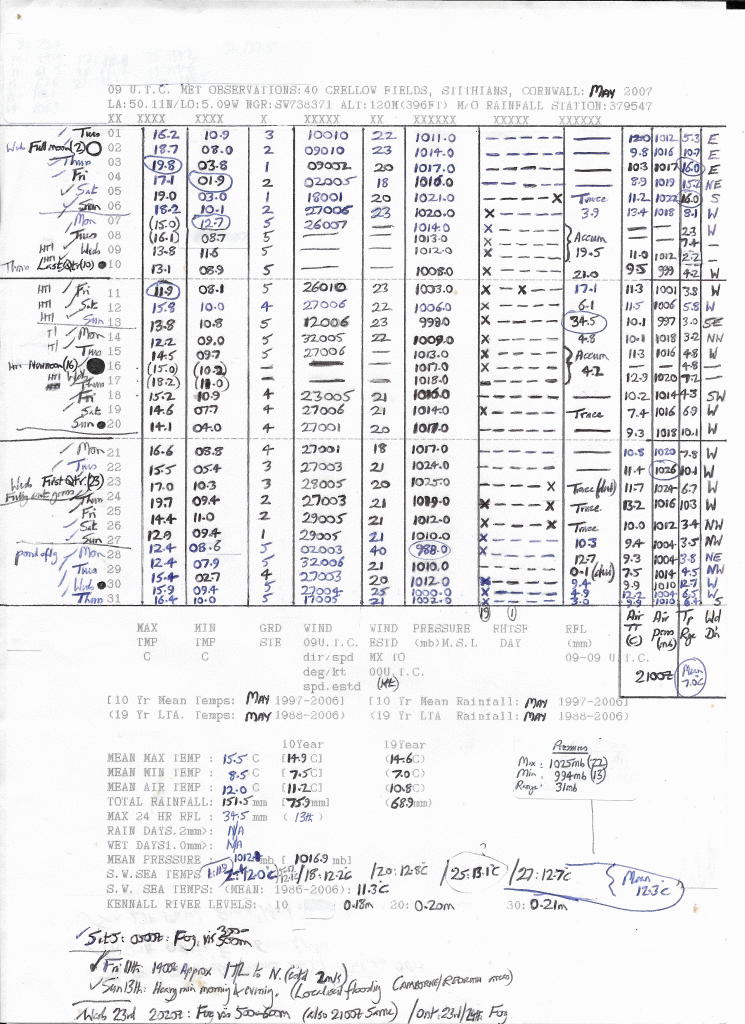 09 U.T.C. MET OBSERVATIONS:40 CRELLOW FIELDS, STITHIANS, CORNWALL: MAY 2007
LA:50.11N/LO:5.09W NGR:SW738371 ALT:120M(396FT) M/O RAINFALL STATION:379547
XX XXXX XXXX X XXXXX XX XXXXXX XXXXX XXXXXX
Tues 01 16.2 10.9 3 10010 22 1011.0 12.0 1012 5.3 E
Wed Full moon (2) 02 18.7 08.0 2 09010 23 1014.0 9.8 1016 10.7 E
Thurs 03 19.8 03.8 1 09002 20 1017.0 10.3 1017 16.0 E
Fri 04 17.1 01.9 2 02005 18 1016.0 8.9 1019 15.2 NE
Sat 05 19.0 03.0 1 18001 20 1021.0 X Trace 11.2 1022 16.0 S
Sun 06 18.2 10.1 2 27006 23 1020.0 X 3.9 13.4 1018 8.1 W
Mon 07 (15.0) 12.7 5 26007 — 1014.0 X — — 2.3 W
Tues 08 (16.1) 08.7 5 — — 1013.0 X Accum — — 7.4 —
Wed 09 13.8 11.6 5 — — 1012.0 X 19.5 11.0 1012 2.2 —
Thurs Last Qtr (10) 10 13.1 08.9 5 — — 1008.0 21.0 9.5 999 4.2 W
Fri 11 11.9 08.1 5 26010 23 1003.0 X X 17.1 11.3 1001 3.8 W
Sat 12 15.8 10.0 4 27006 22 1006.0 6.1 11.5 1006 5.8 W
Sun 13 13.8 10.8 5 12006 23 998.0 X 34.5 10.1 997 3.0 SE
Mon 14 12.2 09.0 5 32005 22 1009.0 X 4.8 10.1 1018 3.2 NW
Tues 15 14.5 09.7 5 27006 1013.0 X Accum 11.3 1016 4.8 W
New moon (16) 16 (15.0) (10.2) — — — 1017.0 X 4.2 — — 4.8 —
Thurs 17 (18.2) (11.0) — — — 1018.0 12.9 1020 7.2 —
Fri 18 15.2 10.9 4 23005 21 1016.0 10.2 1014 4.3 SW
Sat 19 14.6 07.7 4 27006 21 1014.0 X Trace 7.4 1016 6.9 W
Sun 20 14.1 04.0 4 27001 20 1017.0 9.3 1018 10.1 W
Mon 21 16.6 08.8 4 27001 18 1017.0 10.8 1020 7.8 W
Tues 22 15.5 05.4 3 27003 21 1024.0 11.4 1026 10.1 W
Wed First Qtr (23) 23 17.0 10.3 3 28005 20 1025.0 X Trace 11.7 1024 6.7 W
Thurs 24 19.7 09.4 2 27003 21 1019.0 X X Trace 13.2 1016 10.3 W
Fri 25 14.4 11.0 2 29005 21 1012.0 X X Trace 10.0 1012 3.4 NW
Sat 26 12.9 09.4 1 29005 1010.0 10.3 9.4 1004 3.5 NW
Sun 27
Mon 28 12.4 08.6 5 02003 40 988.0 12.7 9.3 1004 3.8 NE
Tues 29 12.4 07.9 5 32006 21 1010.0 0.1 7.5 1014 4.5 NW
Wed 30 15.4 02.7 4 27003 20 1012.0 X 9.4 9.9 1010 12.7 W
Thurs 31 15.9 09.4 5 27004 25 1000.0 X 4.9 12.2 1004 6.5 W
16.4 10.0 5 17005 21 1002.0 X 3.0 9.9 1010 6.4 S
19 1
MAX MIN GRD WIND WIND PRESSURE RHTSF RFL Air Air Tp Wd
TMP TMP STE 09U.T.C. ESTD (mb)M.S.L DAY (mm) TT press Rge Dir
C C dir/spd MX TO 09-09 U.T.C. (C) (mb)
deg/kt 00U.T.C. 2100z Mean 7.0°C
spd.estd (kt)
[10 Yr Mean Temps: MAY 1997-2006] [10 Yr Mean Rainfall: MAY 1997-2006]
(19 Yr LTA. Temps: MAY 1988-2006) (19 Yr LTA Rainfall: MAY 1988-2006)
10Year 19Year
MEAN MAX TEMP : 15.5 C [14.9 C] (14.6 C)
MEAN MIN TEMP : 8.5 C [7.5 C] (7.0 C)
MEAN AIR TEMP : 12.0 C [11.2 C] (10.8 C)
TOTAL RAINFALL: 151.5 mm [75.9 mm] (68.9 mm)
MAX 24 HR RFL : 34.5 mm (13th)
RAIN DAYS.2mm>: N/A
WET DAYS1.0mm>: N/A
MEAN PRESSURE 1012.8 mb [1016.9 mb]
Pressures
Max: 1025mb (22)
Min: 994mb (13)
Range: 31mb
S.W.SEA TEMPS 12.0°C /18:12.2C /20:12.8°C /25:13.1°C /27:12.7°C {Mean 12.3°C
S.W. SEA TEMPS: (MEAN: 1986-2006): 11.3°C
KENNALL RIVER LEVELS: 10 0.18m 20: 0.20m 30: 0.21m
Sat 5: 0500z: Fog vis
Fri 11th: 1900z Approx 1 TL to N.
Sun 13th: Heavy rain morning & evening. (Localised flooding CAMBORNE/REDRUTH areas)
Wed 23rd 2020z: Fog vis 500-600m (also 2100z Same) /Ont: 23rd/24th Fog